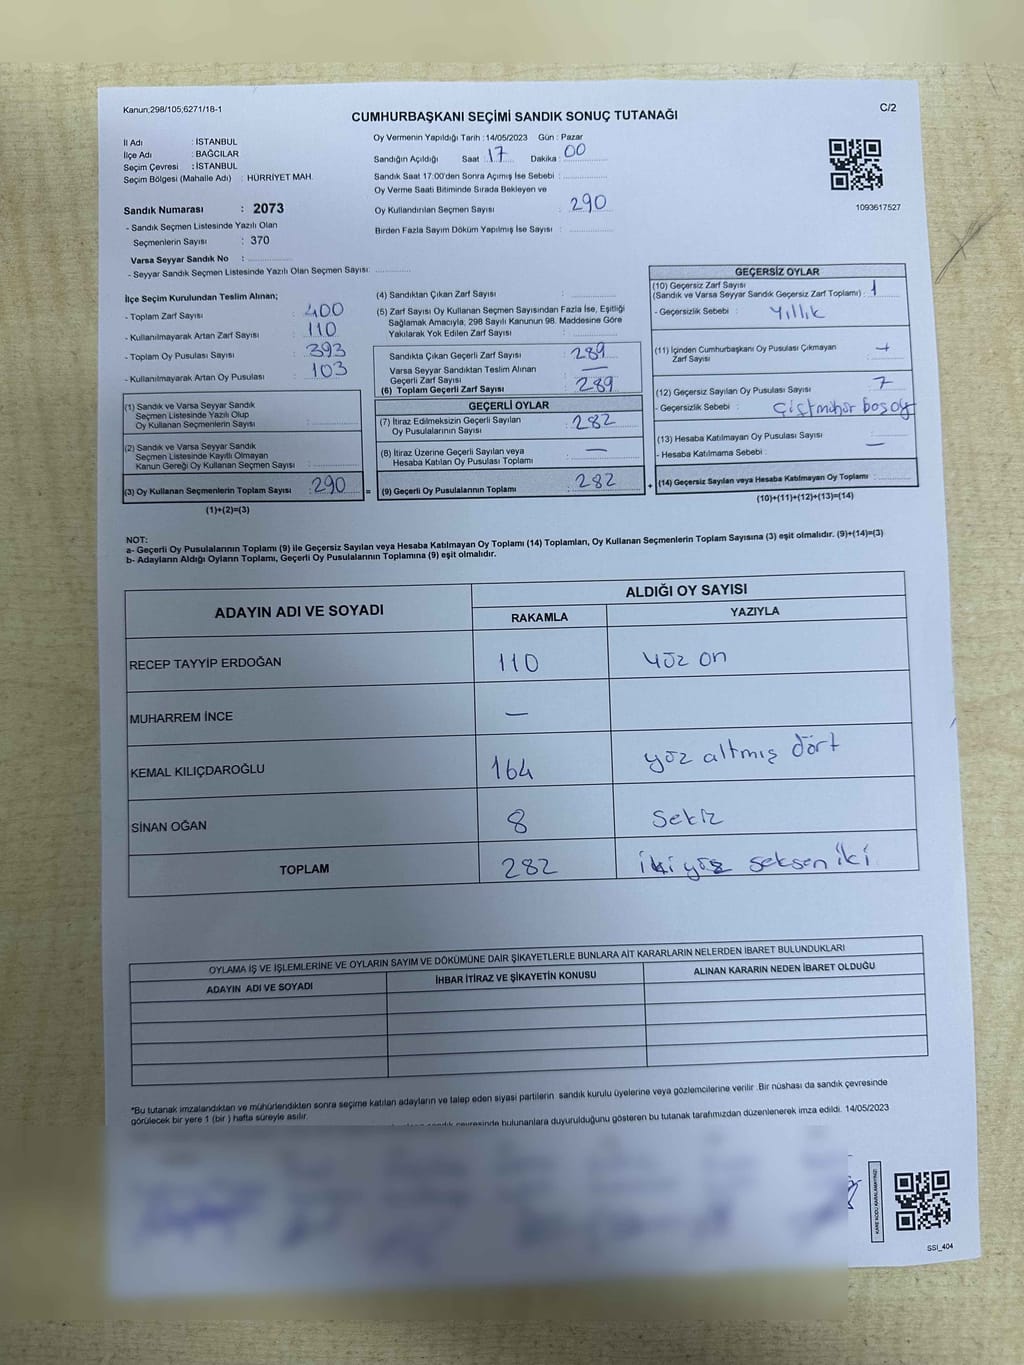 Kanun,298/105,6271/18-1
C/2
CUMHURBAŞKANI SEÇİMİ SANDIK SONUÇ TUTANAĞI
İl Adı : İSTANBUL
İlçe Adı : BAĞCILAR
Seçim Çevresi : İSTANBUL
Seçim Bölgesi (Mahalle Adı) : HÜRRİYET MAH.
Sandık Numarası : 2073
- Sandık Seçmen Listesinde Yazılı Olan
Seçmenlerin Sayısı : 370
Varsa Seyyar Sandık No :
- Seyyar Sandık Seçmen Listesinde Yazılı Olan Seçmen Sayısı:
Oy Vermenin Yapıldığı Tarih :14/05/2023 Gün : Pazar
Sandığın Açıldığı Saat : 17 Dakika : 00
Sandık Saat 17:00'den Sonra Açımış İse Sebebi :
Oy Verme Saati Bitiminde Sırada Bekleyen ve
Oy Kullandırılan Seçmen Sayısı : 290
Birden Fazla Sayım Döküm Yapılmış İse Sayısı :
1093617527
İlçe Seçim Kurulundan Teslim Alınan;
- Toplam Zarf Sayısı : 400
- Kullanılmayarak Artan Zarf Sayısı : 110
- Toplam Oy Pusulası Sayısı : 393
- Kullanılmayarak Artan Oy Pusulası : 103
(1) Sandık ve Varsa Seyyar Sandık
Seçmen Listesinde Yazılı Olup
Oy Kullanan Seçmenlerin Sayısı :
(2) Sandık ve Varsa Seyyar Sandık
Seçmen Listesinde Kayıtlı Olmayan
Kanun Gereği Oy Kullanan Seçmen Sayısı :
(3) Oy Kullanan Seçmenlerin Toplam Sayısı : 290 =
(1)+(2)=(3)
(4) Sandıktan Çıkan Zarf Sayısı :
(5) Zarf Sayısı Oy Kullanan Seçmen Sayısından Fazla İse, Eşitliği
Sağlamak Amacıyla, 298 Sayılı Kanunun 98. Maddesine Göre
Yakılarak Yok Edilen Zarf Sayısı :
Sandıkta Çıkan Geçerli Zarf Sayısı : 289
Varsa Seyyar Sandıktan Teslim Alınan
Geçerli Zarf Sayısı : —
(6) Toplam Geçerli Zarf Sayısı : 289
GEÇERLİ OYLAR
(7) İtiraz Edilmeksizin Geçerli Sayılan
Oy Pusulalarının Sayısı : 282
(8) İtiraz Üzerine Geçerli Sayılan veya
Hesaba Katılan Oy Pusulası Toplamı : —
(9) Geçerli Oy Pusulalarının Toplamı : 282 +
GEÇERSİZ OYLAR
(10) Geçersiz Zarf Sayısı
(Sandık ve Varsa Seyyar Sandık Geçersiz Zarf Toplamı) : 1
- Geçersizlik Sebebi : Yıllık
(11) İçinden Cumhurbaşkanı Oy Pusulası Çıkmayan
Zarf Sayısı :
(12) Geçersiz Sayılan Oy Pusulası Sayısı : 7
- Geçersizlik Sebebi : Çiftmühür boş oy
(13) Hesaba Katılmayan Oy Pusulası Sayısı :
- Hesaba Katılmama Sebebi : —
(14) Geçersiz Sayılan veya Hesaba Katılmayan Oy Toplamı :
(10)+(11)+(12)+(13)=(14)
NOT:
a- Geçerli Oy Pusulalarının Toplamı (9) ile Geçersiz Sayılan veya Hesaba Katılmayan Oy Toplamı (14) Toplamları, Oy Kullanan Seçmenlerin Toplam Sayısına (3) eşit olmalıdır. (9)+(14)=(3)
b- Adayların Aldığı Oyların Toplamı, Geçerli Oy Pusulalarının Toplamına (9) eşit olmalıdır.
ADAYIN ADI VE SOYADI
ALDIĞI OY SAYISI
RAKAMLA YAZIYLA
RECEP TAYYİP ERDOĞAN 110 yüz on
MUHARREM İNCE —
KEMAL KILIÇDAROĞLU 164 yüz altmış dört
SİNAN OĞAN 8 sekiz
TOPLAM 282 iki yüz seksen iki
OYLAMA İŞ VE İŞLEMLERİNE VE OYLARIN SAYIM VE DÖKÜMÜNE DAİR ŞİKAYETLERLE BUNLARA AİT KARARLARIN NELERDEN İBARET BULUNDUKLARI
ADAYIN ADI VE SOYADI İHBAR İTİRAZ VE ŞİKAYETİN KONUSU ALINAN KARARIN NEDEN İBARET OLDUĞU
*Bu tutanak imzalandıktan ve mühürlendikten sonra seçime katılan adayların ve talep eden siyasi partilerin sandık kurulu üyelerine veya gözlemcilerine verilir .Bir nüshası da sandık çevresinde
görülecek bir yere 1 (bir ) hafta süreyle asılır.
sandık çevresinde bulunanlara duyurulduğunu gösteren bu tutanak tarafımızdan düzenlenerek imza edildi. 14/05/2023
KARE KODU KARALAMAYINIZ!
SSI_404